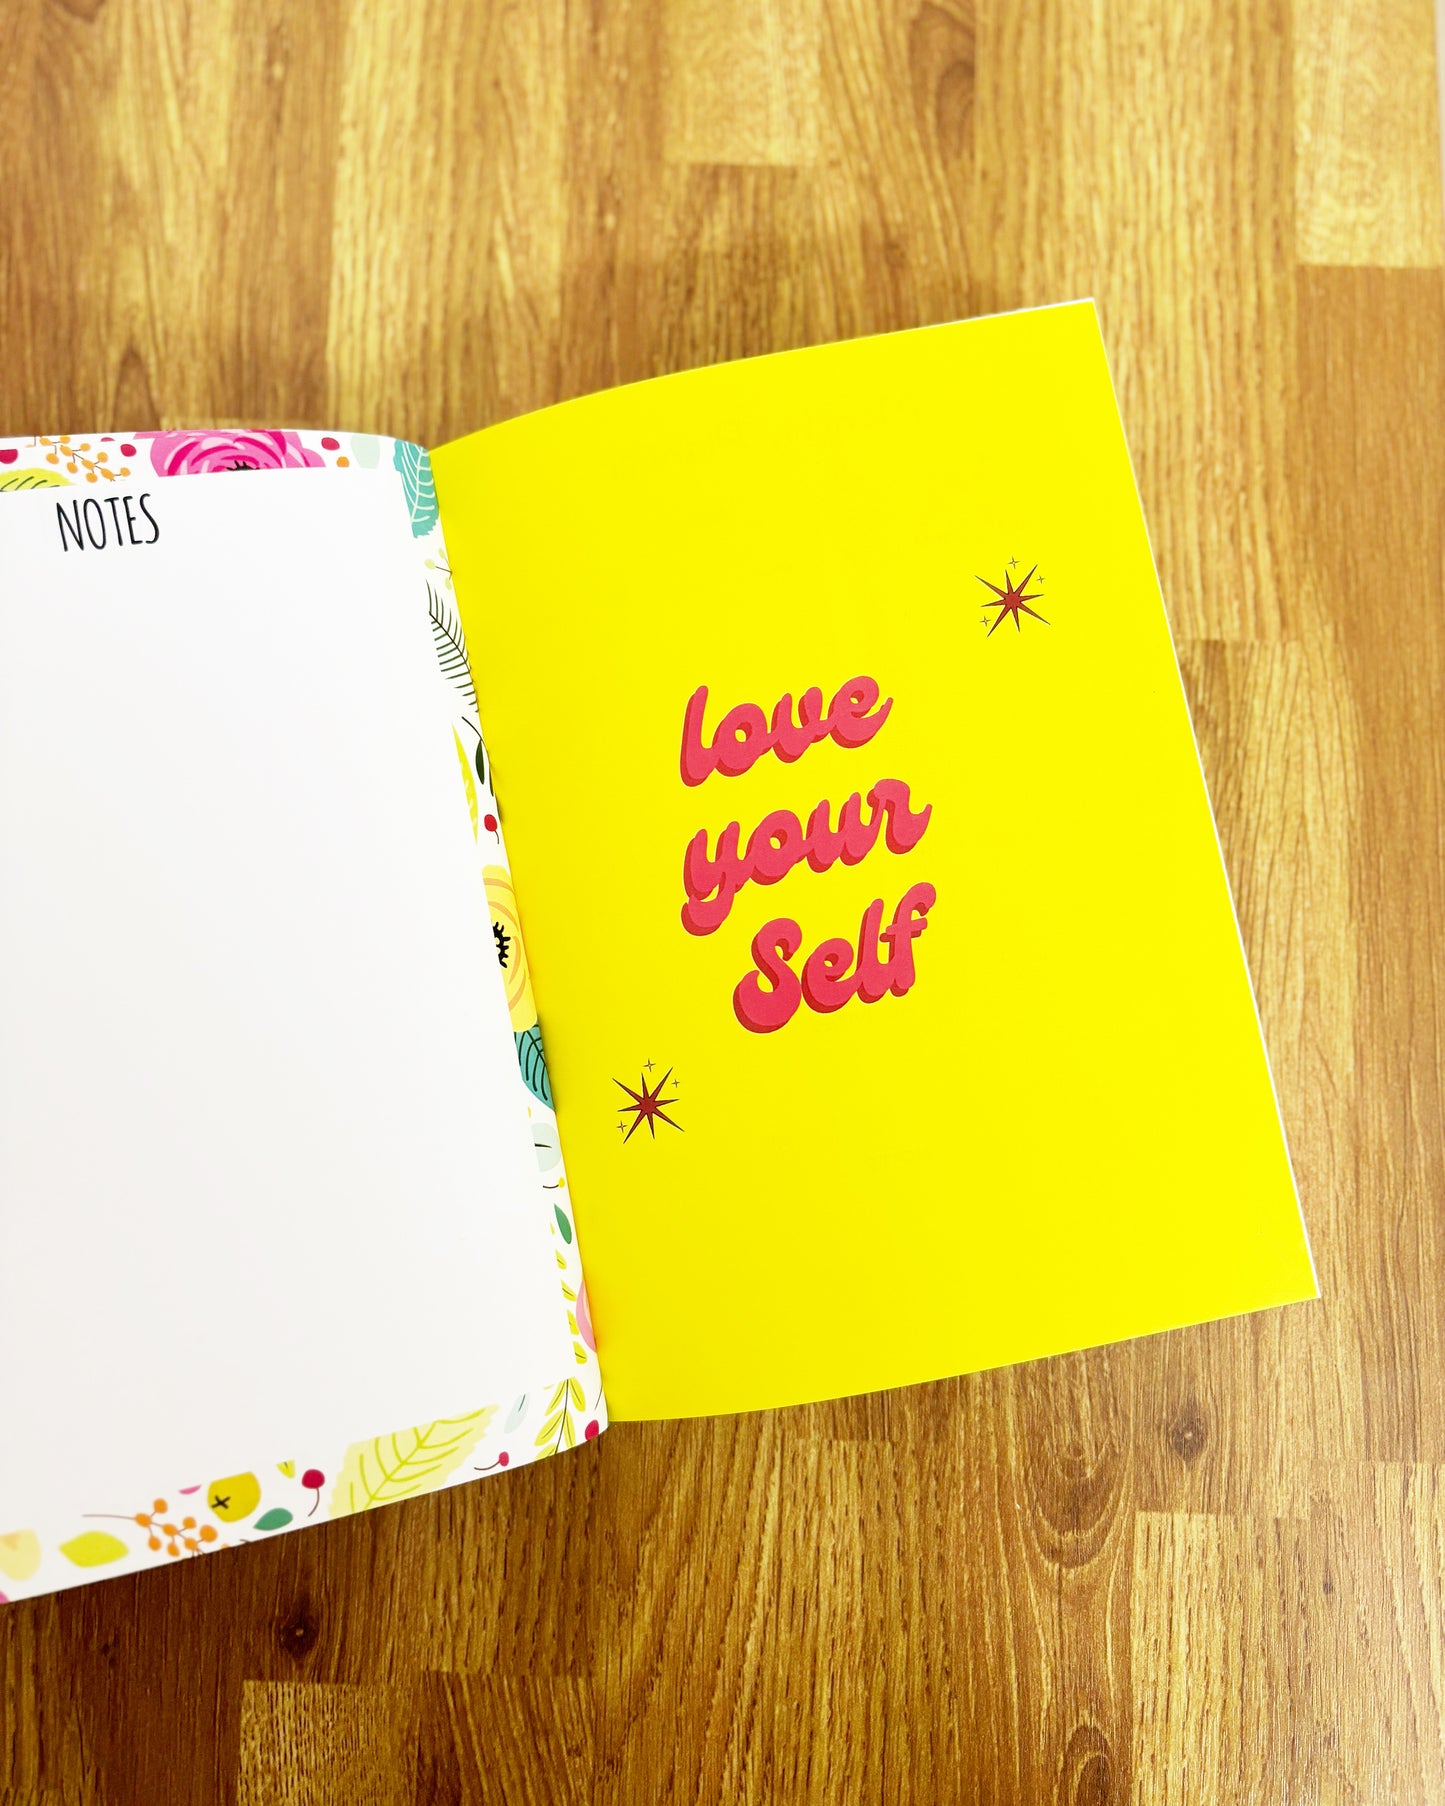 NOTES
love
your
Self